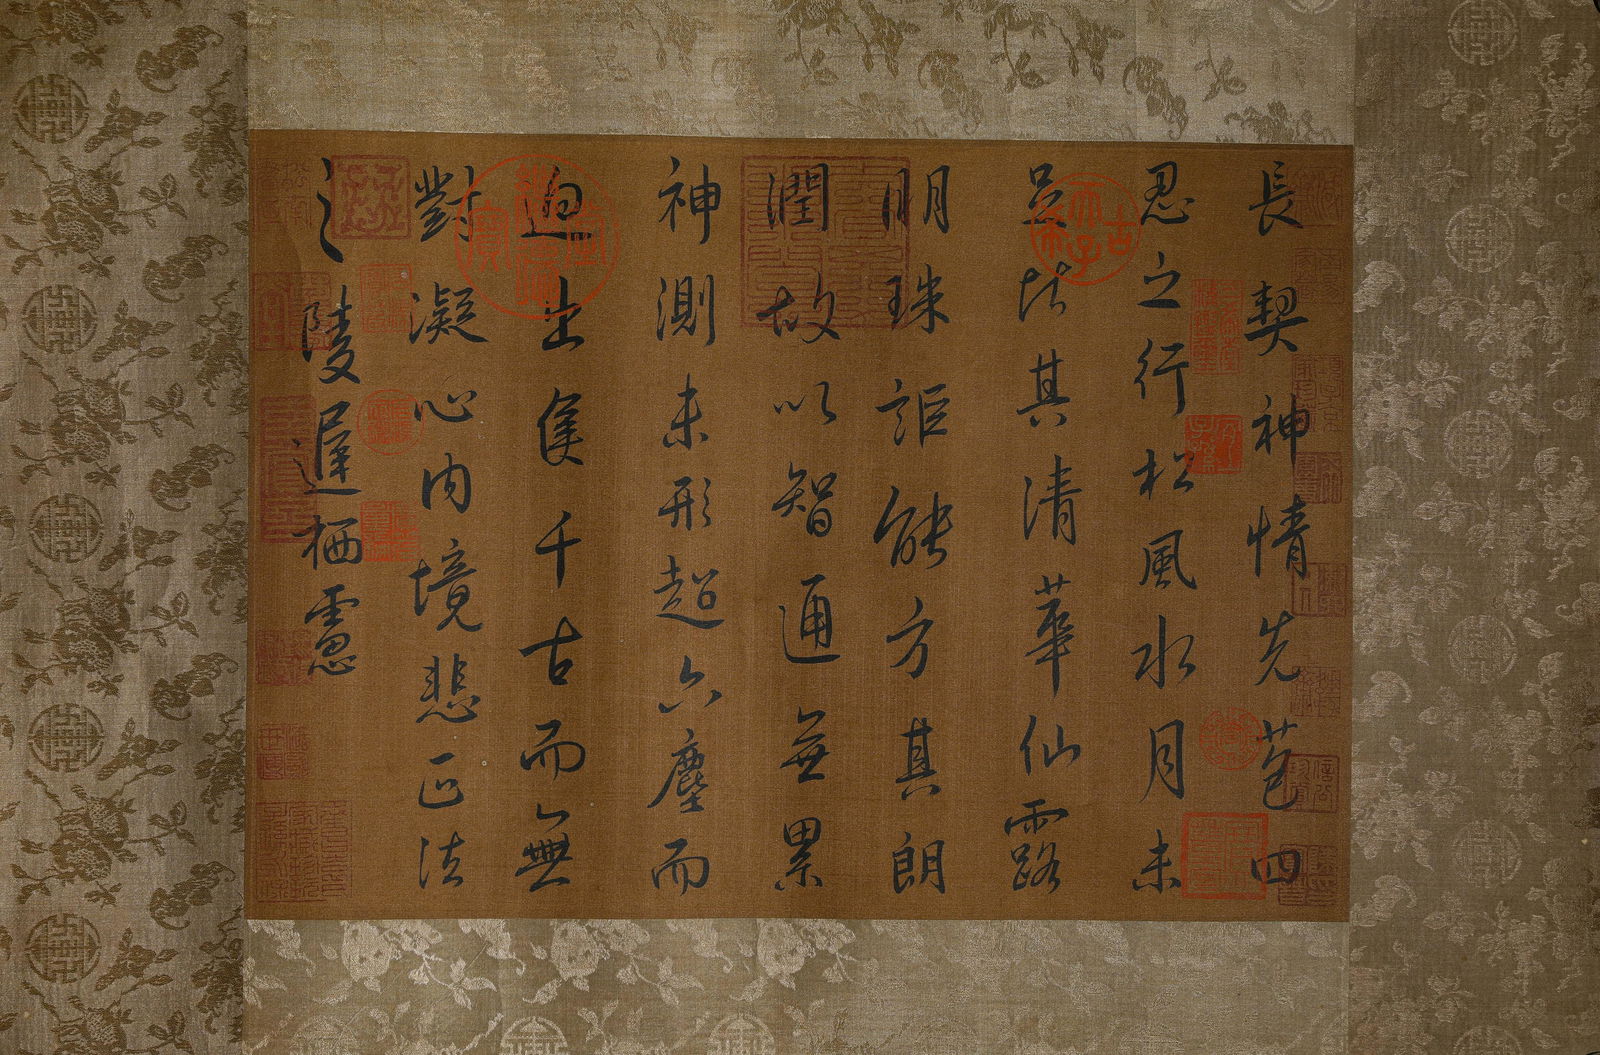 長契神情先苞四
忍之行松風水月未
足比其清華仙露
明珠詎能方其朗
潤故以智通無累
神測未形超六塵而
迥出隻千古而無
對凝心內境悲正法
之陵遲栖慮
古希天子